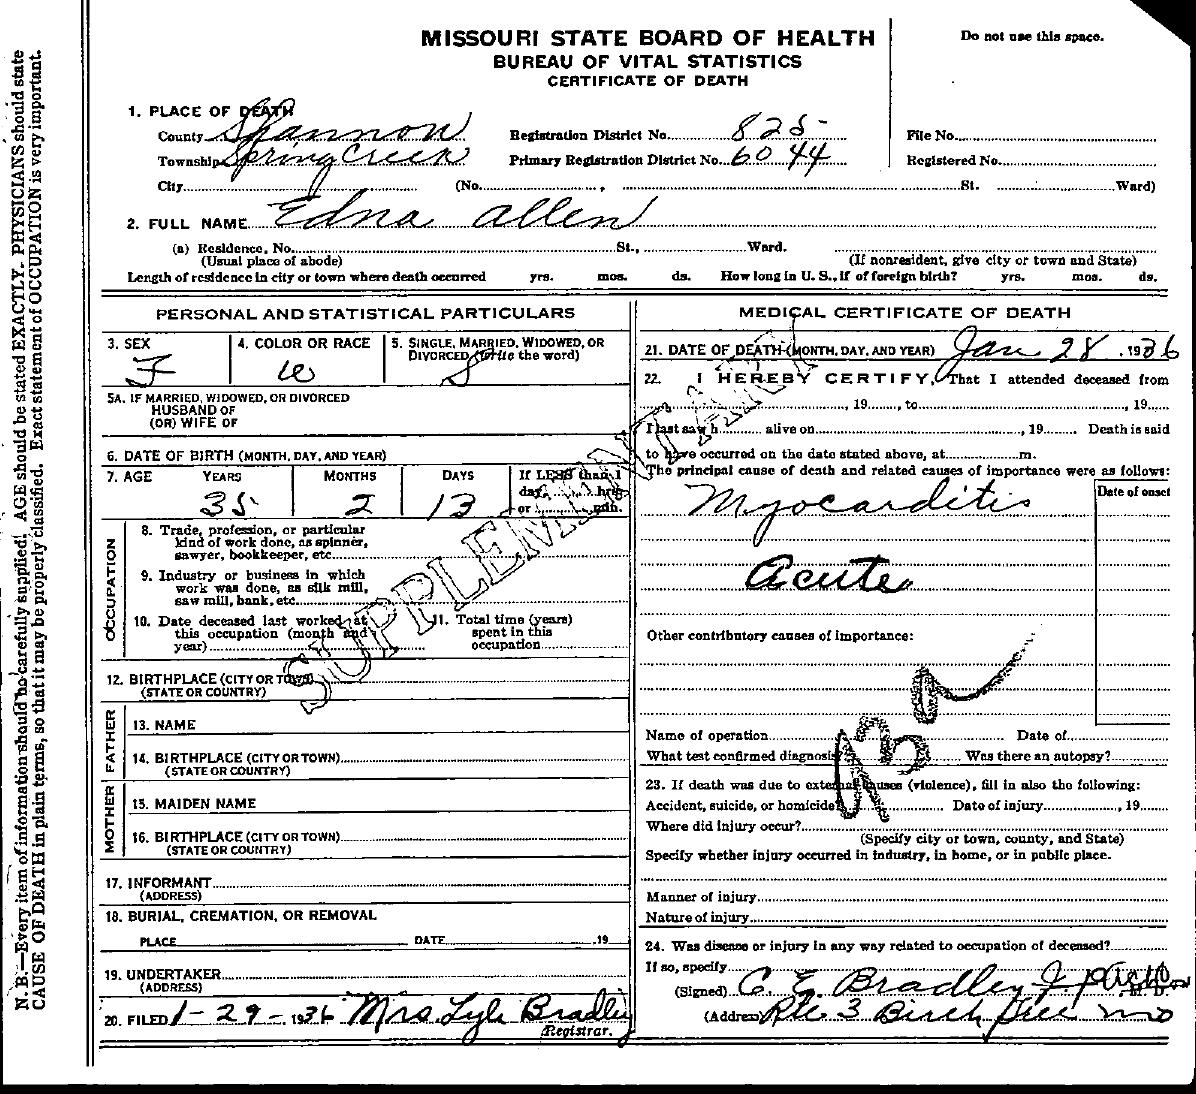 MISSOURI STATE BOARD OF HEALTH
BUREAU OF VITAL STATISTICS
CERTIFICATE OF DEATH
Do not use this space.
1. PLACE OF DEATH
County Shannon Registration District No. 825 File No.
Township Spring Creek Primary Registration District No. 6044 Registered No.
City (No. , St. Ward)
2. FULL NAME Edna Allen
(a) Residence, No. St., Ward.
(Usual place of abode) (If nonresident, give city or town and State)
Length of residence in city or town where death occurred yrs. mos. ds. How long in U. S., if of foreign birth? yrs. mos. ds.
PERSONAL AND STATISTICAL PARTICULARS
3. SEX 4. COLOR OR RACE 5. SINGLE, MARRIED, WIDOWED, OR
DIVORCED (write the word)
F W S
5A. IF MARRIED, WIDOWED, OR DIVORCED
HUSBAND OF
(OR) WIFE OF
6. DATE OF BIRTH (MONTH, DAY, AND YEAR)
7. AGE YEARS MONTHS DAYS If LESS than 1
day, hrs.
or min.
35 2 13
OCCUPATION
8. Trade, profession, or particular
kind of work done, as spinner,
sawyer, bookkeeper, etc.
9. Industry or business in which
work was done, as silk mill,
saw mill, bank, etc.
10. Date deceased last worked at
this occupation (month and
year)
11. Total time (years)
spent in this
occupation
12. BIRTHPLACE (CITY OR TOWN)
(STATE OR COUNTRY)
FATHER
13. NAME
14. BIRTHPLACE (CITY OR TOWN)
(STATE OR COUNTRY)
MOTHER
15. MAIDEN NAME
16. BIRTHPLACE (CITY OR TOWN)
(STATE OR COUNTRY)
17. INFORMANT
(ADDRESS)
18. BURIAL, CREMATION, OR REMOVAL
PLACE DATE 19
19. UNDERTAKER
(ADDRESS)
20. FILED 1-29-1936 Mrs. Lyle Bradley
Registrar.
MEDICAL CERTIFICATE OF DEATH
21. DATE OF DEATH (MONTH, DAY, AND YEAR) Jan 28, 1936
22. I HEREBY CERTIFY, That I attended deceased from
, 19 , to , 19
I last saw h alive on , 19 Death is said
to have occurred on the date stated above, at m.
The principal cause of death and related causes of importance were as follows:
Date of onset
Myocarditis
Acute
Other contributory causes of importance:
Name of operation Date of
What test confirmed diagnosis Was there an autopsy?
23. If death was due to external causes (violence), fill in also the following:
Accident, suicide, or homicide Date of injury , 19
Where did injury occur?
(Specify city or town, county, and State)
Specify whether injury occurred in industry, in home, or in public place.
Manner of injury
Nature of injury
24. Was disease or injury in any way related to occupation of deceased?
If so, specify
(Signed) C. E. Bradley
(Address) Rte 3 Birch Mo
SUPPLEMENTARY
N. B.—Every item of information should be carefully supplied. AGE should be stated EXACTLY. PHYSICIANS should state
CAUSE OF DEATH in plain terms, so that it may be properly classified. Exact statement of OCCUPATION is very important.